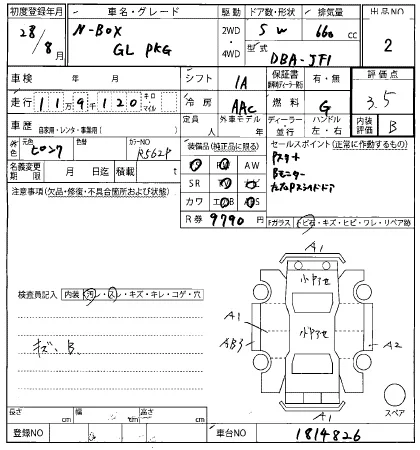 初度登録年月 車名・グレード 駆動 ドア数・形状 排気量 出品NO
28/8月 N-BOX GL PKG 2WD・4WD 5 W 660 cc 2
型式 DBA-JF1
車検 年 月 シフト IA 保証書 有・無 評価点
走行 119,120 キロ・マイル 冷房 AAC 燃料 G 3.5
車歴 自家用・レンタ・事業用( ) 定員 人 外車モデル 年 ディーラー・並行 ハンドル 左・右 内装評価 B
外色 元色 ピンク 色替 カラーNO R562P
装備品(純正品に限る) セールスポイント(正常に作動するもの)
名義変更期限 月 日迄 積載 t
AW Pスタート
SR Bモニター
注意事項(欠品・修復・不具合箇所および状態)
カワ
R券 9790 円
Fガラス トビ石・キズ・ヒビ・ワレ・リペア跡
A1
小キズ
検査員記入 内装 汚レ・スレ・キズ・キレ・コゲ・穴
A1
キズ、B
AB3 A2
A1
スペア
長さ cm 幅 cm 高さ cm
登録NO 車台NO 1814826